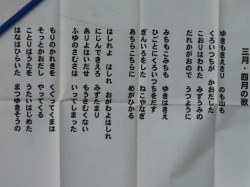 三月・四月の歌
ゆきもきえきり のも山も
くろいつちが かおだした
こおりはわれた みずうみの
だれかがおので うつように
みちもこみちも ゆきはきえ
ひごとにくろい つちをだす
ぎんいろをした ねこやなぎ
あちらこちらに めがひかる
はしれよ はしれ おがわよはしれ
にじんできえろ みずたまり
ありよはいだせ もうさむくない
ふゆのさむさは いってしまった
もりのかれきを くぐってくまは
そっとかおだし やってくる
ことりはうたを うたいはじめた
はなはひらいた まつゆきそうの